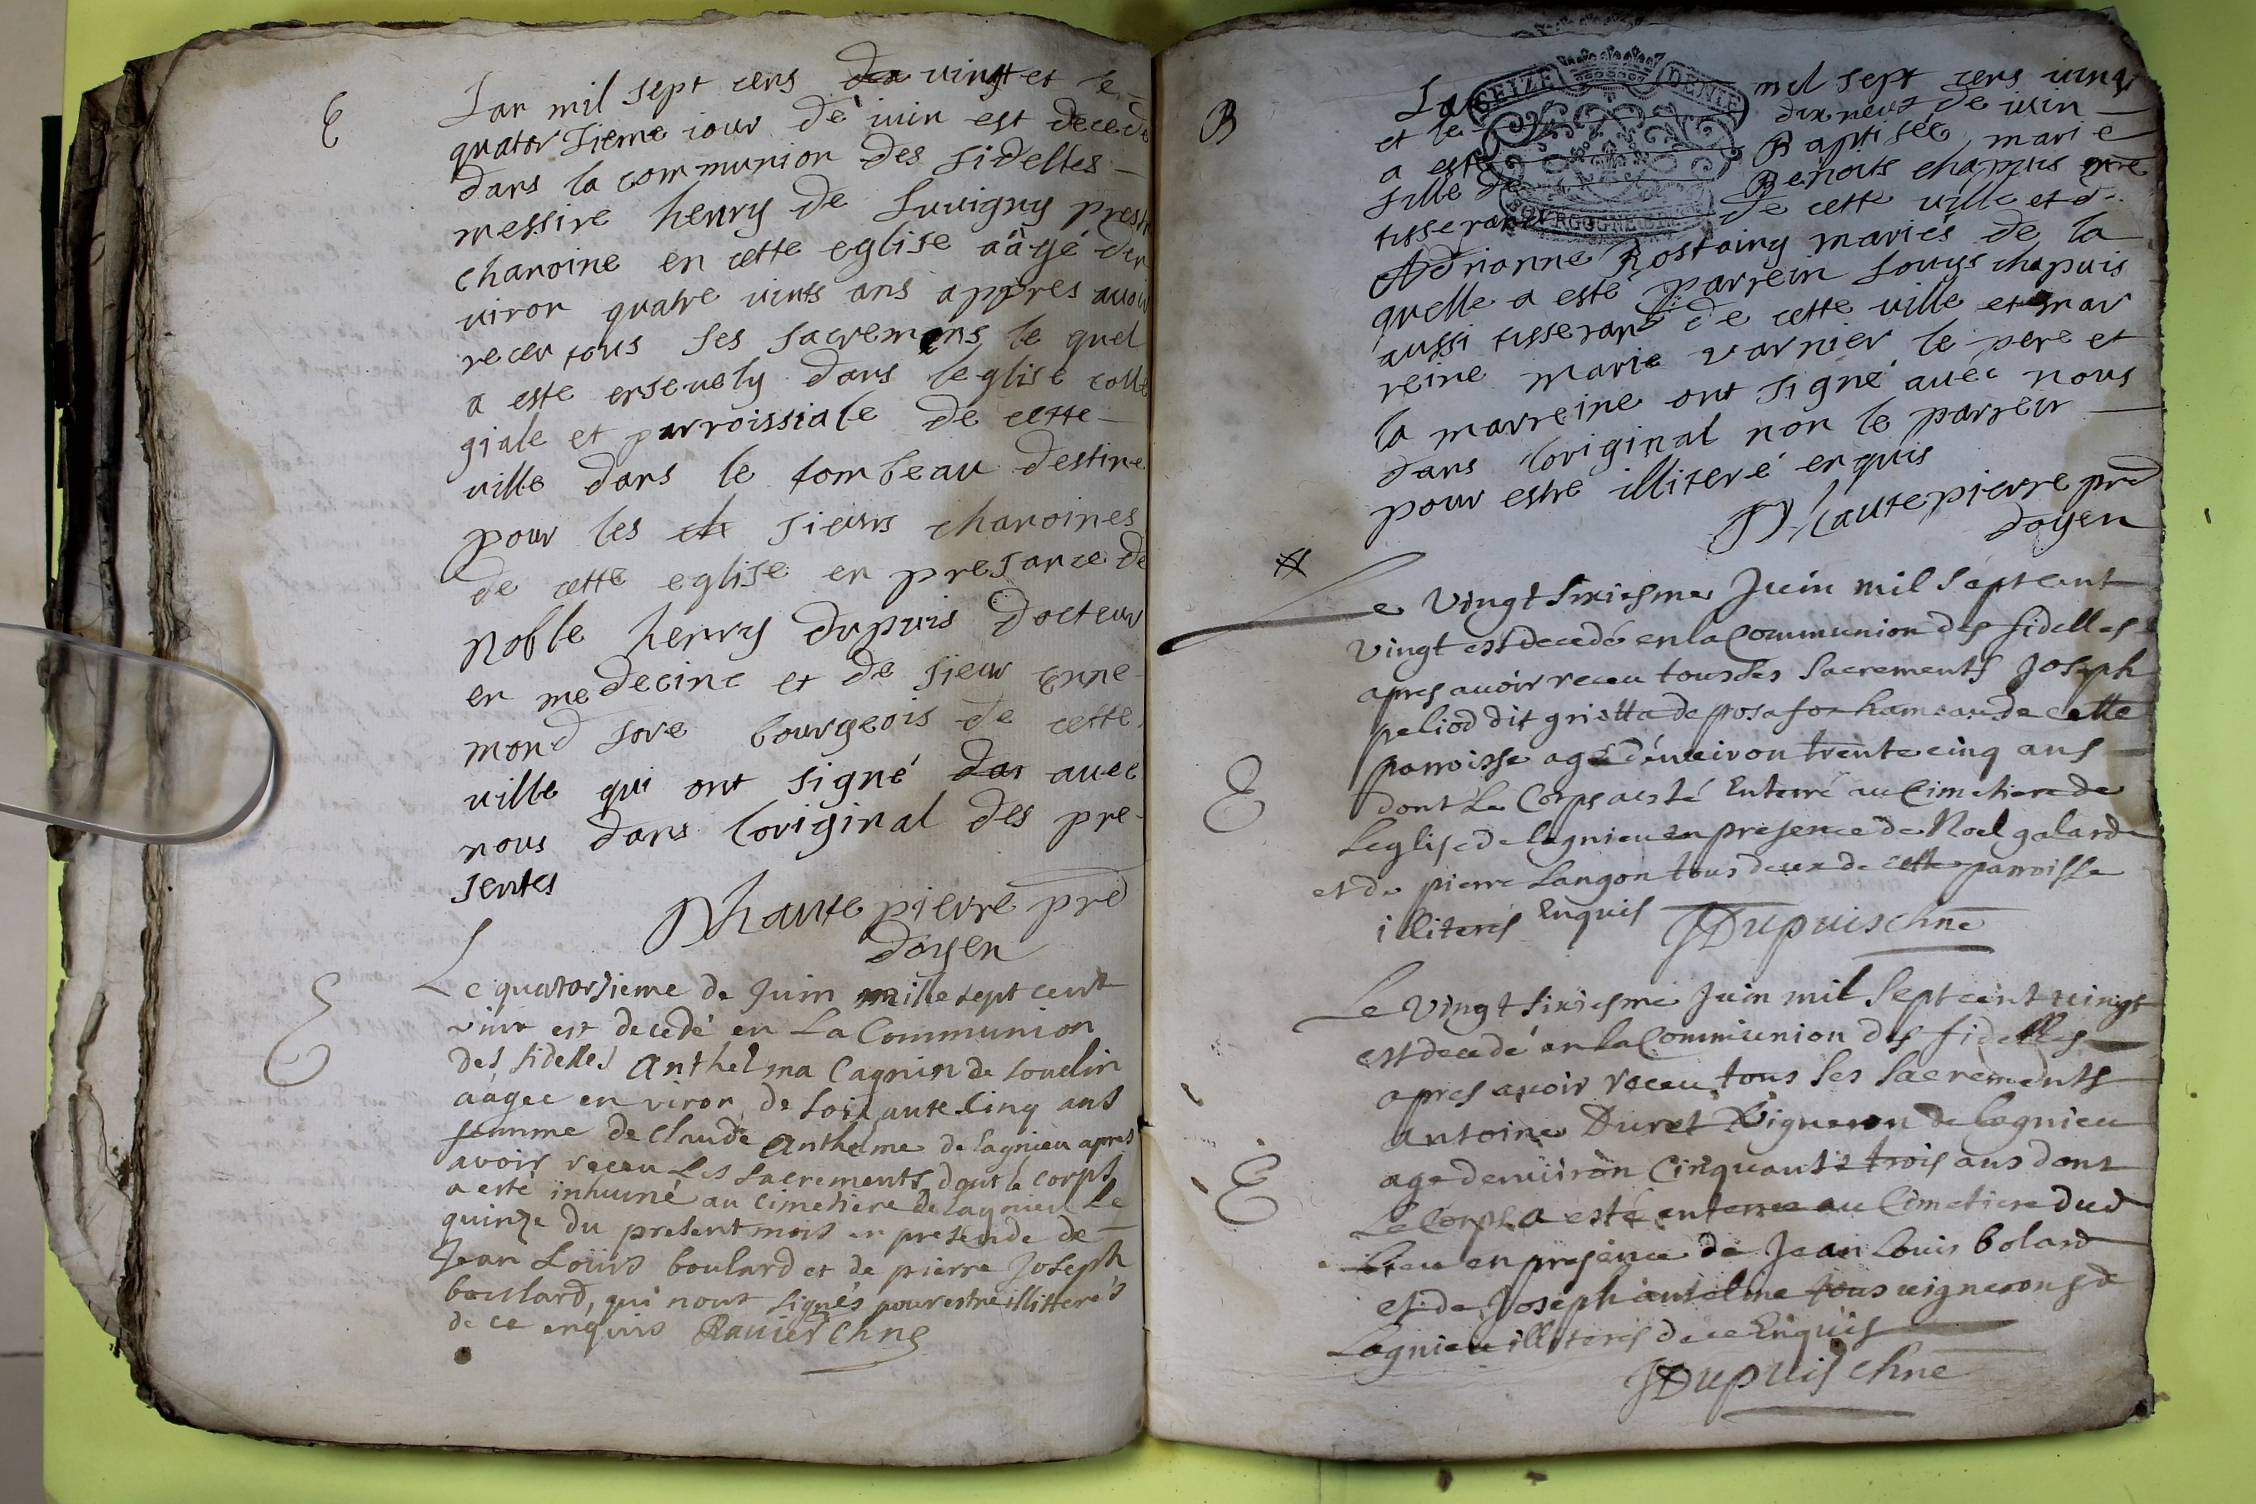 E
Lan mil sept cens vingt et le
quatorsieme iour de iuin est decede
dans la communion des fidelles
messire henry de Luuigny prest
chanoine en cette eglise aâgé den
viron quatre vints ans appres auoir
receu tous ses sacremens le quel
a este enseuely dans leglise colle
giale et parroissiale de cette
ville dans le tombeau destine
pour les sieurs chanoines
de cette eglise en presance de
noble henry dupuis docteur
en medecine et de sieur enne
mond sove bourgeois de cette
ville qui ont signé avec
nous dans loriginal des pre
sentes
Dhautepierre pre
doyen
E
Le quatorsieme de Juin mille sept cent
vint est decedé en La Communion
des fidelles anthelma Cagnin de soudin
aàgee environ de soixante cinq ans
femme de claude anthelme de lagnieu apres
avoir receu Les sacrements dont le corps
a esté inhumé au cimetiere de lagnieu Le
quinze du present mois en presende de
Jean Loüis boulard et de pierre Joseph
boulard, qui nont signés pour estre illitterés
de ce enquis Ravier Chne
SEIZE DENIE
BOURGOGNE
B
Lan mil sept cens ving
et le dix neuf de iuin
a esté Baptisée marie
fille de Benoits chapuis mre
tisserand de cette ville et d
Adrianne Rostaing mariés de la
quelle a esté parrein Louys chapuis
aussi tisserand de cette ville et mar
reine marie varnier le pere et
la marreine ont signé avec nous
dans loriginal non le parrein
pour estre illiteré enquis
Dhautepierre pre
doyen
Le Vingt sixiesme Juin mil Sept cent
vingt est decedé en la Communion des fidelles
apres auoir receu tous Les Sacrements Joseph
peliod dit griotta de posafor hameau de cette
E
parroisse agé denuiron trente cinq ans
dont Le Corps a esté Enterré au Cimetiere de
Leglise de lagnieu en presence de Noel galard
et de pierre Langon tous deux de cette parroisse
illiterés Enquis JDupuis chne
Le Vingt sixiesme Juin mil Sept cent vingt
est decedé en la Communion des fidelles
apres avoir receu tous Les Sacrements
antoine Duret Vigneron de lagnieu
E
age denuiron Cinquante trois ans dont
Le Corps a esté enterre au Cimetiere dud
Lieu en presence de Jean Louis bolard
et de Joseph antelme tous uignerons de
Lagnieu illiterés de ce Enquis
JDupuis chne